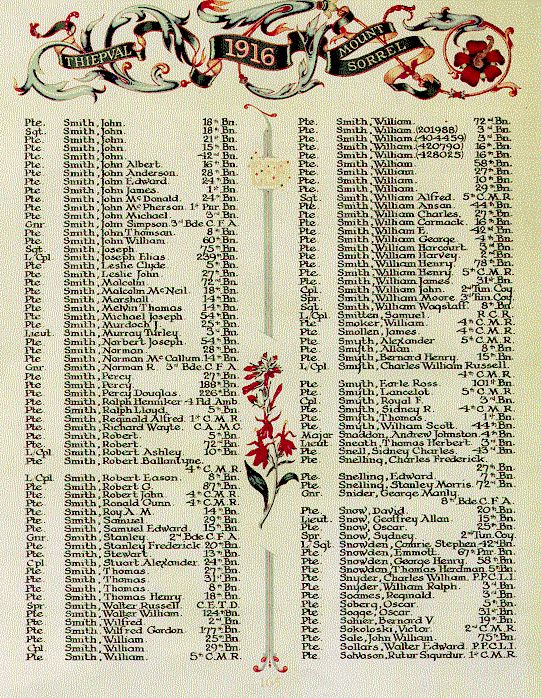 THIEPVAL 1916 MOUNT SORREL
Pte. Smith, John. 18th Bn.
Sgt. Smith, John. 18th Bn.
Pte. Smith, John. 21st Bn.
Pte. Smith, John. 15th Bn.
Pte. Smith, John. 42nd Bn.
Pte. Smith, John Albert. 16th Bn.
Pte. Smith, John Anderson. 28th Bn.
Pte. Smith, John Edward. 24th Bn.
Pte. Smith, John James. 1st Bn.
Pte. Smith, John McDonald. 24th Bn.
Pte. Smith, John McPherson. 1st Pnr. Bn.
Pte. Smith, John Michael. 3rd Bn.
Gnr. Smith, John Simpson. 3rd Bde. C.F.A.
Pte. Smith, John Thomson. 8th Bn.
Pte. Smith, John William. 60th Bn.
Sgt. Smith, Joseph. 75th Bn.
L/Cpl. Smith, Joseph Elias. 239th Bn.
Pte. Smith, Leslie Clyde. 5th Bn.
Pte. Smith, Leslie John. 27th Bn.
Pte. Smith, Malcolm. 72nd Bn.
Pte. Smith, Malcolm McNeil. 18th Bn.
Pte. Smith, Marshall. 14th Bn.
Pte. Smith, Melvin Thomas. 14th Bn.
Pte. Smith, Michael Joseph. 54th Bn.
Pte. Smith, Murdoch J. 25th Bn.
Lieut. Smith, Murray Turley. 3rd Bn.
Pte. Smith, Norbert Joseph. 54th Bn.
Pte. Smith, Norman. 28th Bn.
Pte. Smith, Norman McCallum. 14th Bn.
Gnr. Smith, Norman R. 3rd Bde. C.F.A.
Pte. Smith, Percy. 27th Bn.
Pte. Smith, Percy. 188th Bn.
Pte. Smith, Percy Douglas. 226th Bn.
Pte. Smith, Ralph Henniker. 4th Fld. Amb.
Pte. Smith, Ralph Lloyd. 5th Bn.
Pte. Smith, Reginald Alfred. 1st C.M.R.
Pte. Smith, Richard Wayte. C.A.M.C.
Pte. Smith, Robert. 5th Bn.
Pte. Smith, Robert. 72nd Bn.
L/Cpl. Smith, Robert Ashley. 10th Bn.
Pte. Smith, Robert Ballantyne.
4th C.M.R.
L/Cpl. Smith, Robert Eason. 8th Bn.
Pte. Smith, Robert G. 87th Bn.
Pte. Smith, Robert John. 4th C.M.R.
Pte. Smith, Ronald Gunn. 4th C.M.R.
Pte. Smith, Roy A. M. 14th Bn.
Pte. Smith, Samuel. 29th Bn.
Pte. Smith, Samuel Edward. 15th Bn.
Gnr. Smith, Stanley. 2nd Bde. C.F.A.
Pte. Smith, Stanley Frederick. 20th Bn.
Pte. Smith, Stewart. 13th Bn.
Cpl. Smith, Stuart Alexander. 24th Bn.
Pte. Smith, Thomas. 27th Bn.
Pte. Smith, Thomas. 31st Bn.
Pte. Smith, Thomas. 8th Bn.
Pte. Smith, Thomas Henry. 18th Bn.
Spr. Smith, Walter Russell. C.E.T.D.
Pte. Smith, Walter William. 124th Bn.
Pte. Smith, Wilfred. 2nd Bn.
Pte. Smith, Wilfred Gordon. 177th Bn.
Pte. Smith, William. 25th Bn.
Cpl. Smith, William. 29th Bn.
Pte. Smith, William. 5th C.M.R.
Pte. Smith, William. 72nd Bn.
Pte. Smith, William. (201988) 3rd Bn.
Pte. Smith, William. (404459) 3rd Bn.
Pte. Smith, William. (420790) 16th Bn.
Pte. Smith, William. (428025) 16th Bn.
Pte. Smith, William. 58th Bn.
Pte. Smith, William. 27th Bn.
Pte. Smith, William. 10th Bn.
Pte. Smith, William. 29th Bn.
Sgt. Smith, William Alfred. 5th C.M.R.
Pte. Smith, William Ansan. 44th Bn.
Pte. Smith, William Charles. 27th Bn.
Pte. Smith, William Cormack. 16th Bn.
Pte. Smith, William E. 42nd Bn.
Pte. Smith, William George. 4th Bn.
Pte. Smith, William Harcourt. 3rd Bn.
Pte. Smith, William Harvey. 2nd Bn.
Pte. Smith, William Henry. 78th Bn.
Pte. Smith, William Henry. 5th C.M.R.
Pte. Smith, William James. 31st Bn.
Cpl. Smith, William John. 2nd Tun. Coy.
Spr. Smith, William Moore. 3rd Tun. Coy.
Sgt. Smith, William Wagstaff. 8th Bn.
L/Cpl. Smitten, Samuel. R.C.R.
Pte. Smoker, William. 4th C.M.R.
Pte. Smollen, James. 4th C.M.R.
Pte. Smyth, Alexander. 5th C.M.R.
Pte. Smyth, Allan. 8th Bn.
Pte. Smyth, Bernard Henry. 15th Bn.
L/Cpl. Smyth, Charles William Russell.
4th C.M.R.
Pte. Smyth, Earle Ross. 101st Bn.
Pte. Smyth, Lancelot. 5th C.M.R.
Cpl. Smyth, Royal F. 3rd Bn.
Pte. Smyth, Sidney R. 4th C.M.R.
Pte. Smyth, Thomas. 1st Bn.
Pte. Smyth, William Scott. 44th Bn.
Major Snaddon, Andrew Johnston. 4th Bn.
Lieut. Sneath, Thomas Herbert. 3rd Bn.
Pte. Snell, Sidney Charles. 43rd Bn.
Pte. Snelling, Charles Frederick.
27th Bn.
Pte. Snelling, Edward. 7th Bn.
Pte. Snelling, Stanley Morris. 72nd Bn.
Gnr. Snider, George Manly.
8th Bde. C.F.A.
Pte. Snow, David. 20th Bn.
Lieut. Snow, Geoffrey Allan. 15th Bn.
Pte. Snow, Oscar. 25th Bn.
Spr. Snow, Sydney. 2nd Tun. Coy.
L/Sgt. Snowden, Corrie Stephen. 42nd Bn.
Pte. Snowden, Emmott. 67th Pnr. Bn.
Pte. Snowden, George Henry. 58th Bn.
Pte. Snowden, Thomas Herdman. 5th Bn.
Pte. Snyder, Charles William. P.P.C.L.I.
Pte. Snyder, William Ralph. 3rd Bn.
Pte. Soames, Reginald. 3rd Bn.
Pte. Soberg, Oscar. 5th Bn.
Pte. Sogge, Oscar. 31st Bn.
Pte. Sohier, Bernard V. 19th Bn.
Pte. Sokoloski, Victor. 2nd C.M.R.
Pte. Sole, John William. 75th Bn.
Pte. Sollars, Walter Edward. P.P.C.L.I.
Pte. Solvason, Rutur Sigurdur. 1st C.M.R.